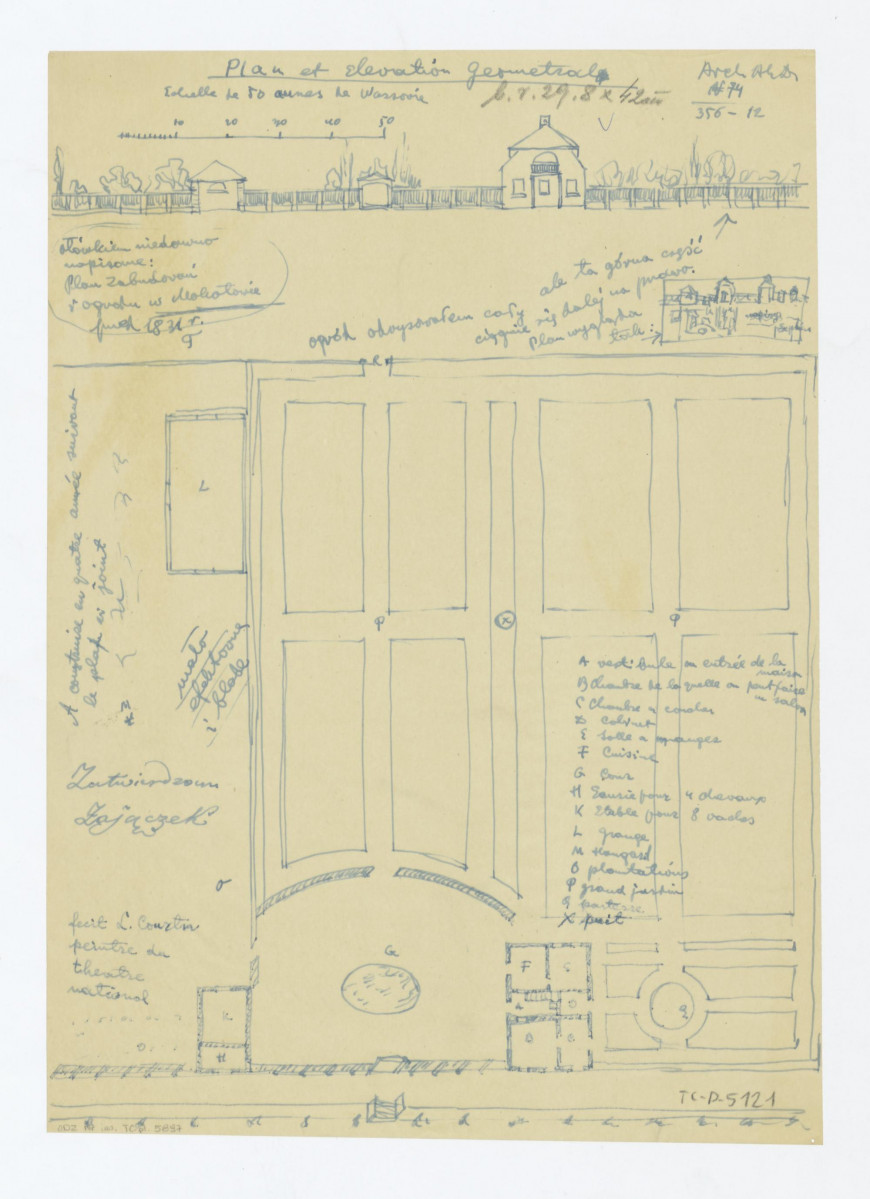 Plan et Elevation Geometral
Echelle de 50 aunes de Warsovie
b. r. 29.8 x 42 cm
Arch Ak D
AF 74
356 - 12
10 20 30 40 50
ołówkiem niedawno
napisane:
Plan Zabudowań
i ogrodu w Mokotowie
przed 1831 r.
ale ta górna część
ciągnie się dalej na prawo.
ogród odrysowałem cały
plan wygląda
tak:
R
A construire en quatre année suivant
le plan ci joint
L
P
X
P
mało
efektowne
i blade
A vestibule ou entrée de la
maison
B Chambre de laquelle on peut faire
un salon
C Chambre a coucher
D Cabinet
E Salle a manger
F Cuisine
G Cour
H Ecurie pour 4 chevaux
K Etable pour 8 vaches
L Grange
M Hangard
O plantations
P grand jardin
Q parterre
X puit
Zatwierdzam
Zajączek
O
fecit L. Courtin
peintre du
theatre
national
G
F
A
Q
K
H
O
TC-D-5121